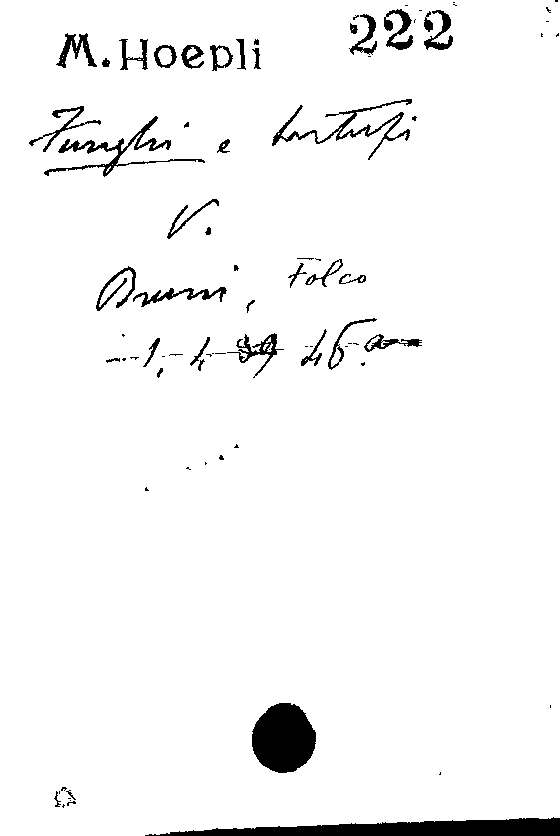 M. Hoepli 222
Funghi e tartufi
V.
Bruni, Folco